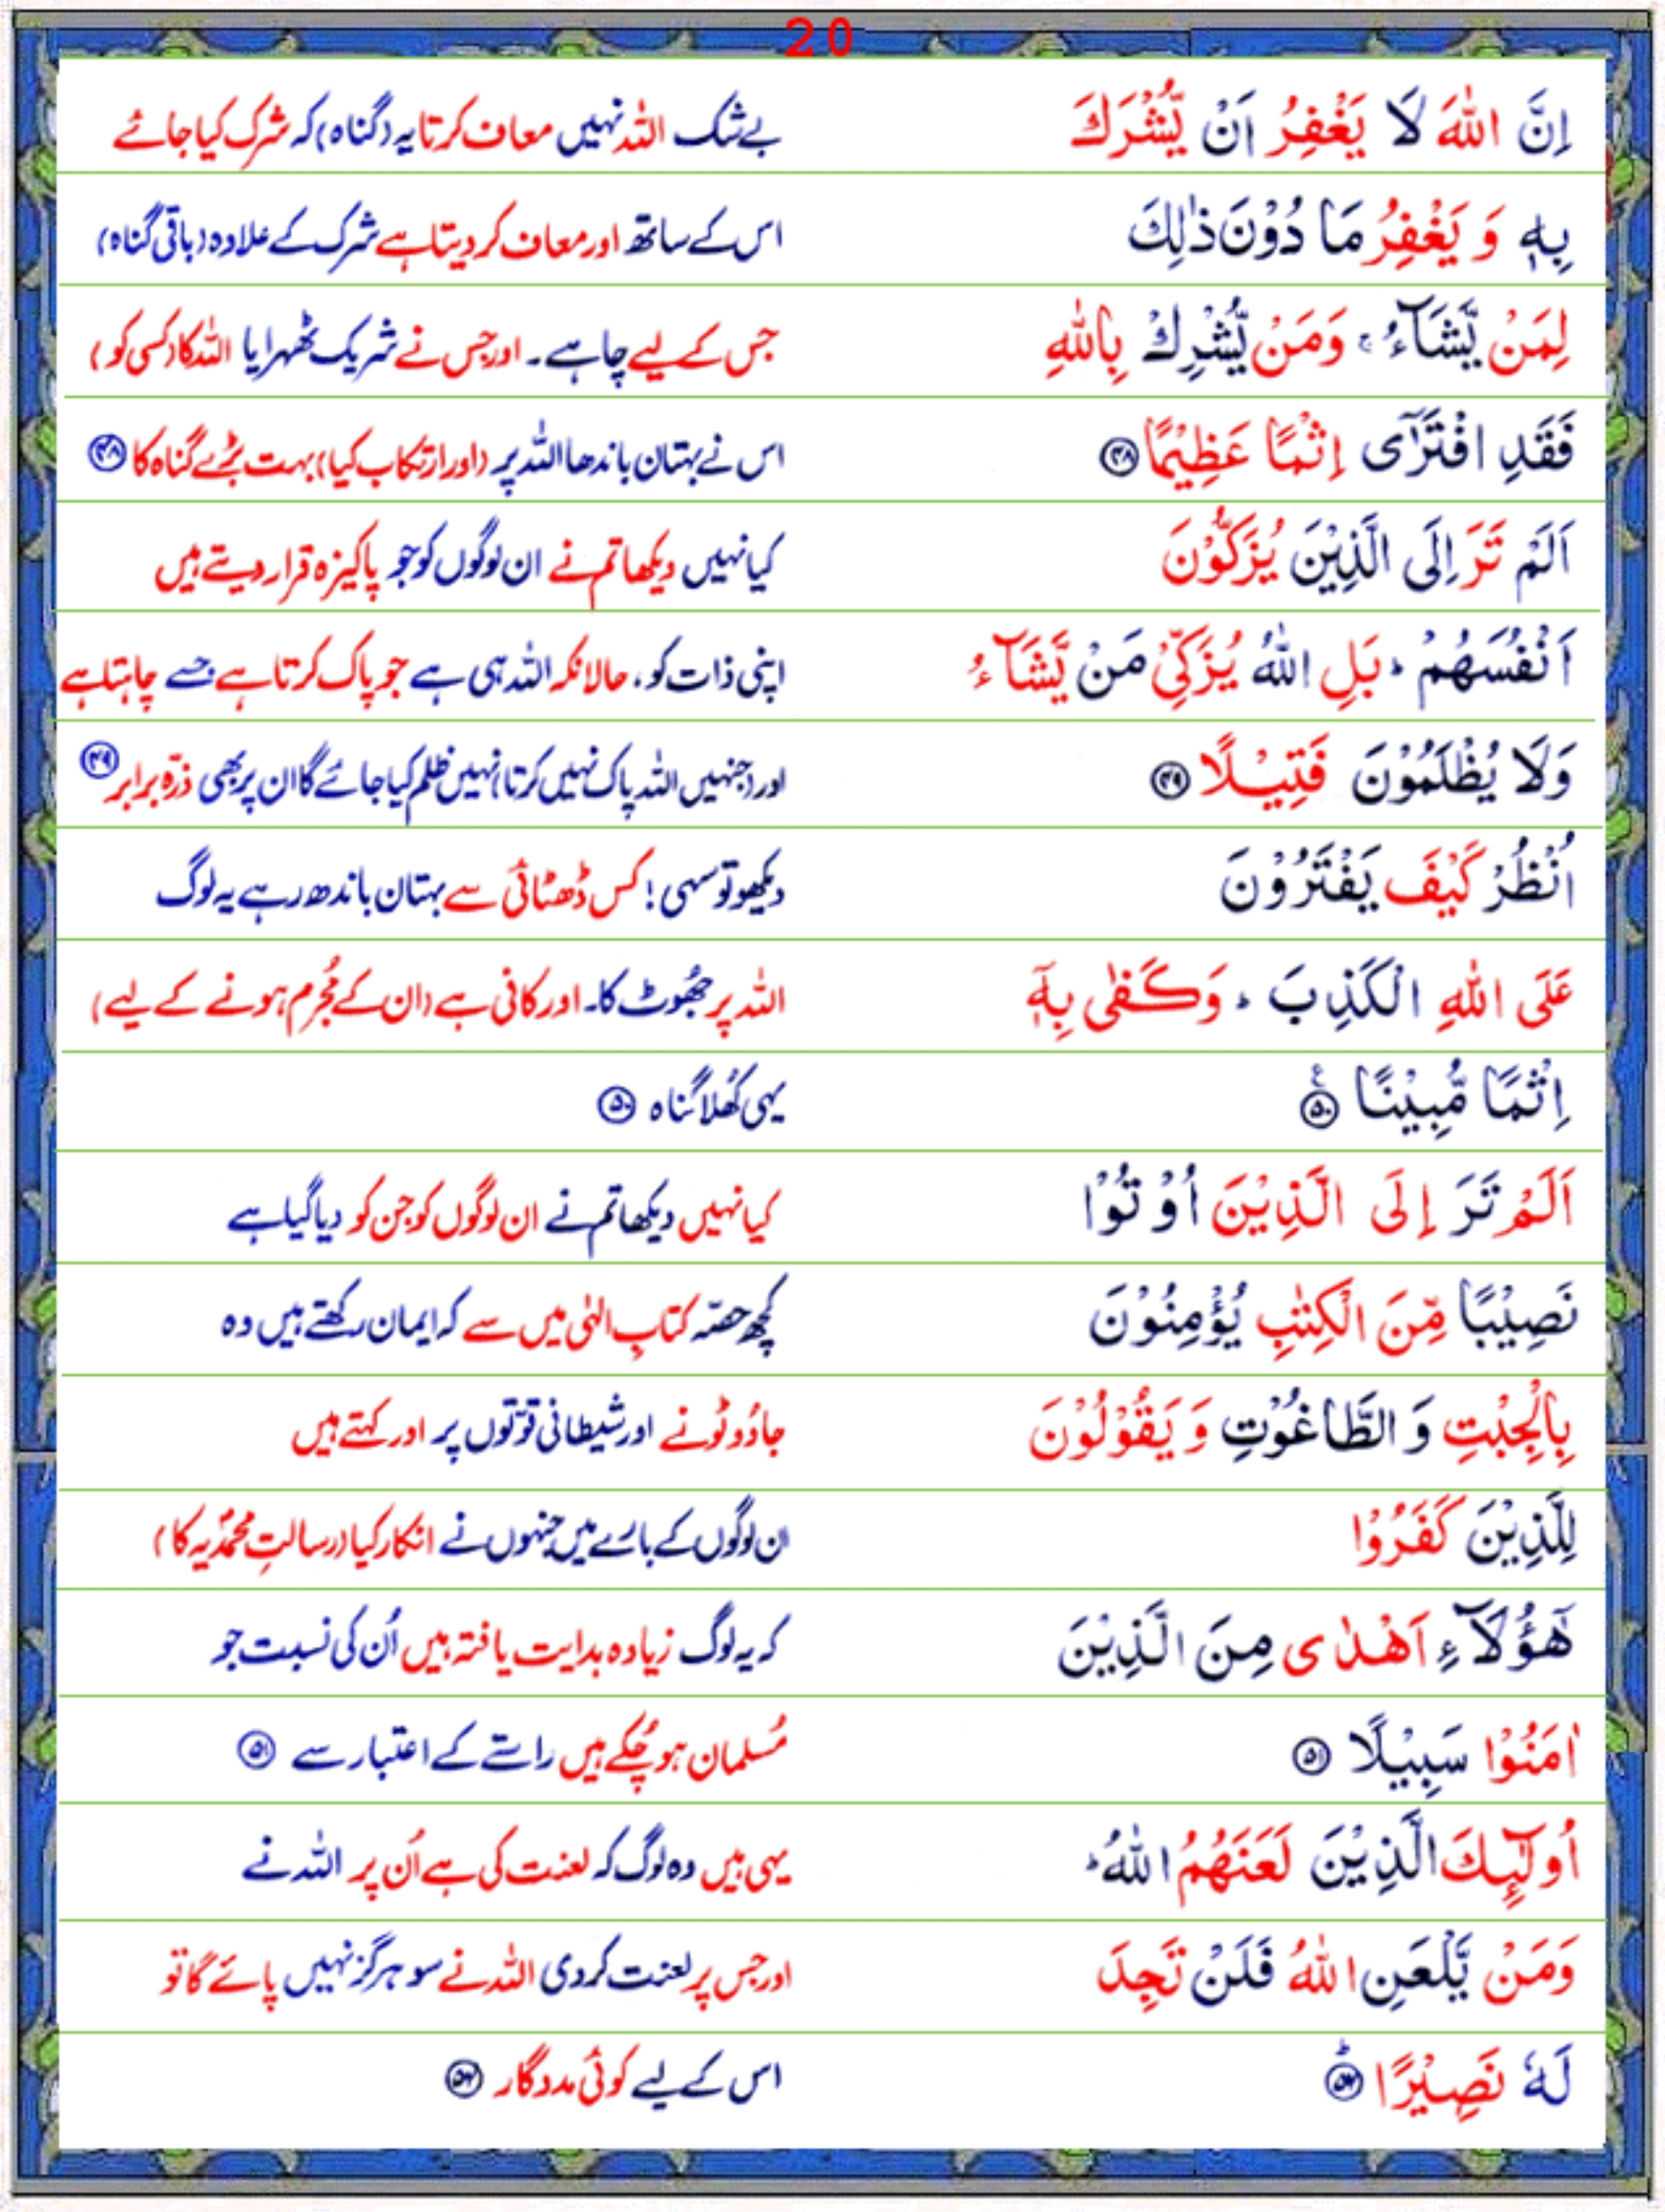 20
اِنَّ اللّٰهَ لَا يَغْفِرُ اَنْ يُّشْرَكَ
بے شک اللہ نہیں معاف کرتا یہ (گناہ) کہ شرک کیا جائے
بِهٖ وَ يَغْفِرُ مَا دُوْنَ ذٰلِكَ
اس کے ساتھ اور معاف کر دیتا ہے شرک کے علاوہ (باقی گناہ)
لِمَنْ يَّشَآءُ ۚ وَمَنْ يُّشْرِكْ بِاللّٰهِ
جس کے لیے چاہے۔ اور جس نے شریک ٹھہرایا اللہ کا (کسی کو)
فَقَدِ افْتَرٰٓى اِثْمًا عَظِيْمًا ۴۸
اس نے بہتان باندھا اللہ پر (اور ارتکاب کیا) بہت بڑے گناہ کا ۴۸
اَلَمْ تَرَ اِلَى الَّذِيْنَ يُزَكُّوْنَ
کیا نہیں دیکھا تم نے ان لوگوں کو جو پاکیزہ قرار دیتے ہیں
اَنْفُسَهُمْ ؕ بَلِ اللّٰهُ يُزَكِّىْ مَنْ يَّشَآءُ
اپنی ذات کو، حالانکہ اللہ ہی ہے جو پاک کرتا ہے جسے چاہتا ہے
وَلَا يُظْلَمُوْنَ فَتِيْلًا ۴۹
اور (جنہیں اللہ پاک نہیں کرتا) نہیں ظلم کیا جائے گا ان پر بھی ذرّہ برابر ۴۹
اُنْظُرْ كَيْفَ يَفْتَرُوْنَ
دیکھو تو سہی! کس ڈھٹائی سے بہتان باندھ رہے یہ لوگ
عَلَى اللّٰهِ الْكَذِبَ ؕ وَكَفٰى بِهٖٓ
اللہ پر جھُوٹ کا۔ اور کافی ہے (ان کے مُجرم ہونے کے لیے)
اِثْمًا مُّبِيْنًا ۵۰
یہی کھُلا گناہ ۵۰
اَلَمْ تَرَ اِلَى الَّذِيْنَ اُوْتُوْا
کیا نہیں دیکھا تم نے ان لوگوں کو جن کو دیا گیا ہے
نَصِيْبًا مِّنَ الْكِتٰبِ يُؤْمِنُوْنَ
کچھ حصّہ کتابِ الہٰی میں سے کہ ایمان رکھتے ہیں وہ
بِالْجِبْتِ وَ الطَّاغُوْتِ وَ يَقُوْلُوْنَ
جادُو ٹونے اور شیطانی قوّتوں پر اور کہتے ہیں
لِلَّذِيْنَ كَفَرُوْا
ان لوگوں کے بارے میں جنہوں نے انکار کیا (رسالتِ محمدّیہ کا)
هٰٓؤُلَآءِ اَهْدٰى مِنَ الَّذِيْنَ
کہ یہ لوگ زیادہ ہدایت یافتہ ہیں اُن کی نسبت جو
اٰمَنُوْا سَبِيْلًا ۵۱
مُسلمان ہو چُکے ہیں راستے کے اعتبار سے ۵۱
اُولٰٓئِكَ الَّذِيْنَ لَعَنَهُمُ اللّٰهُ ؕ
یہی ہیں وہ لوگ کہ لعنت کی ہے اُن پر اللہ نے
وَمَنْ يَّلْعَنِ اللّٰهُ فَلَنْ تَجِدَ
اور جس پر لعنت کر دی اللہ نے سو ہرگز نہیں پائے گا تو
لَهٗ نَصِيْرًا ؕ ۵۲
اس کے لیے کوئی مددگار ۵۲